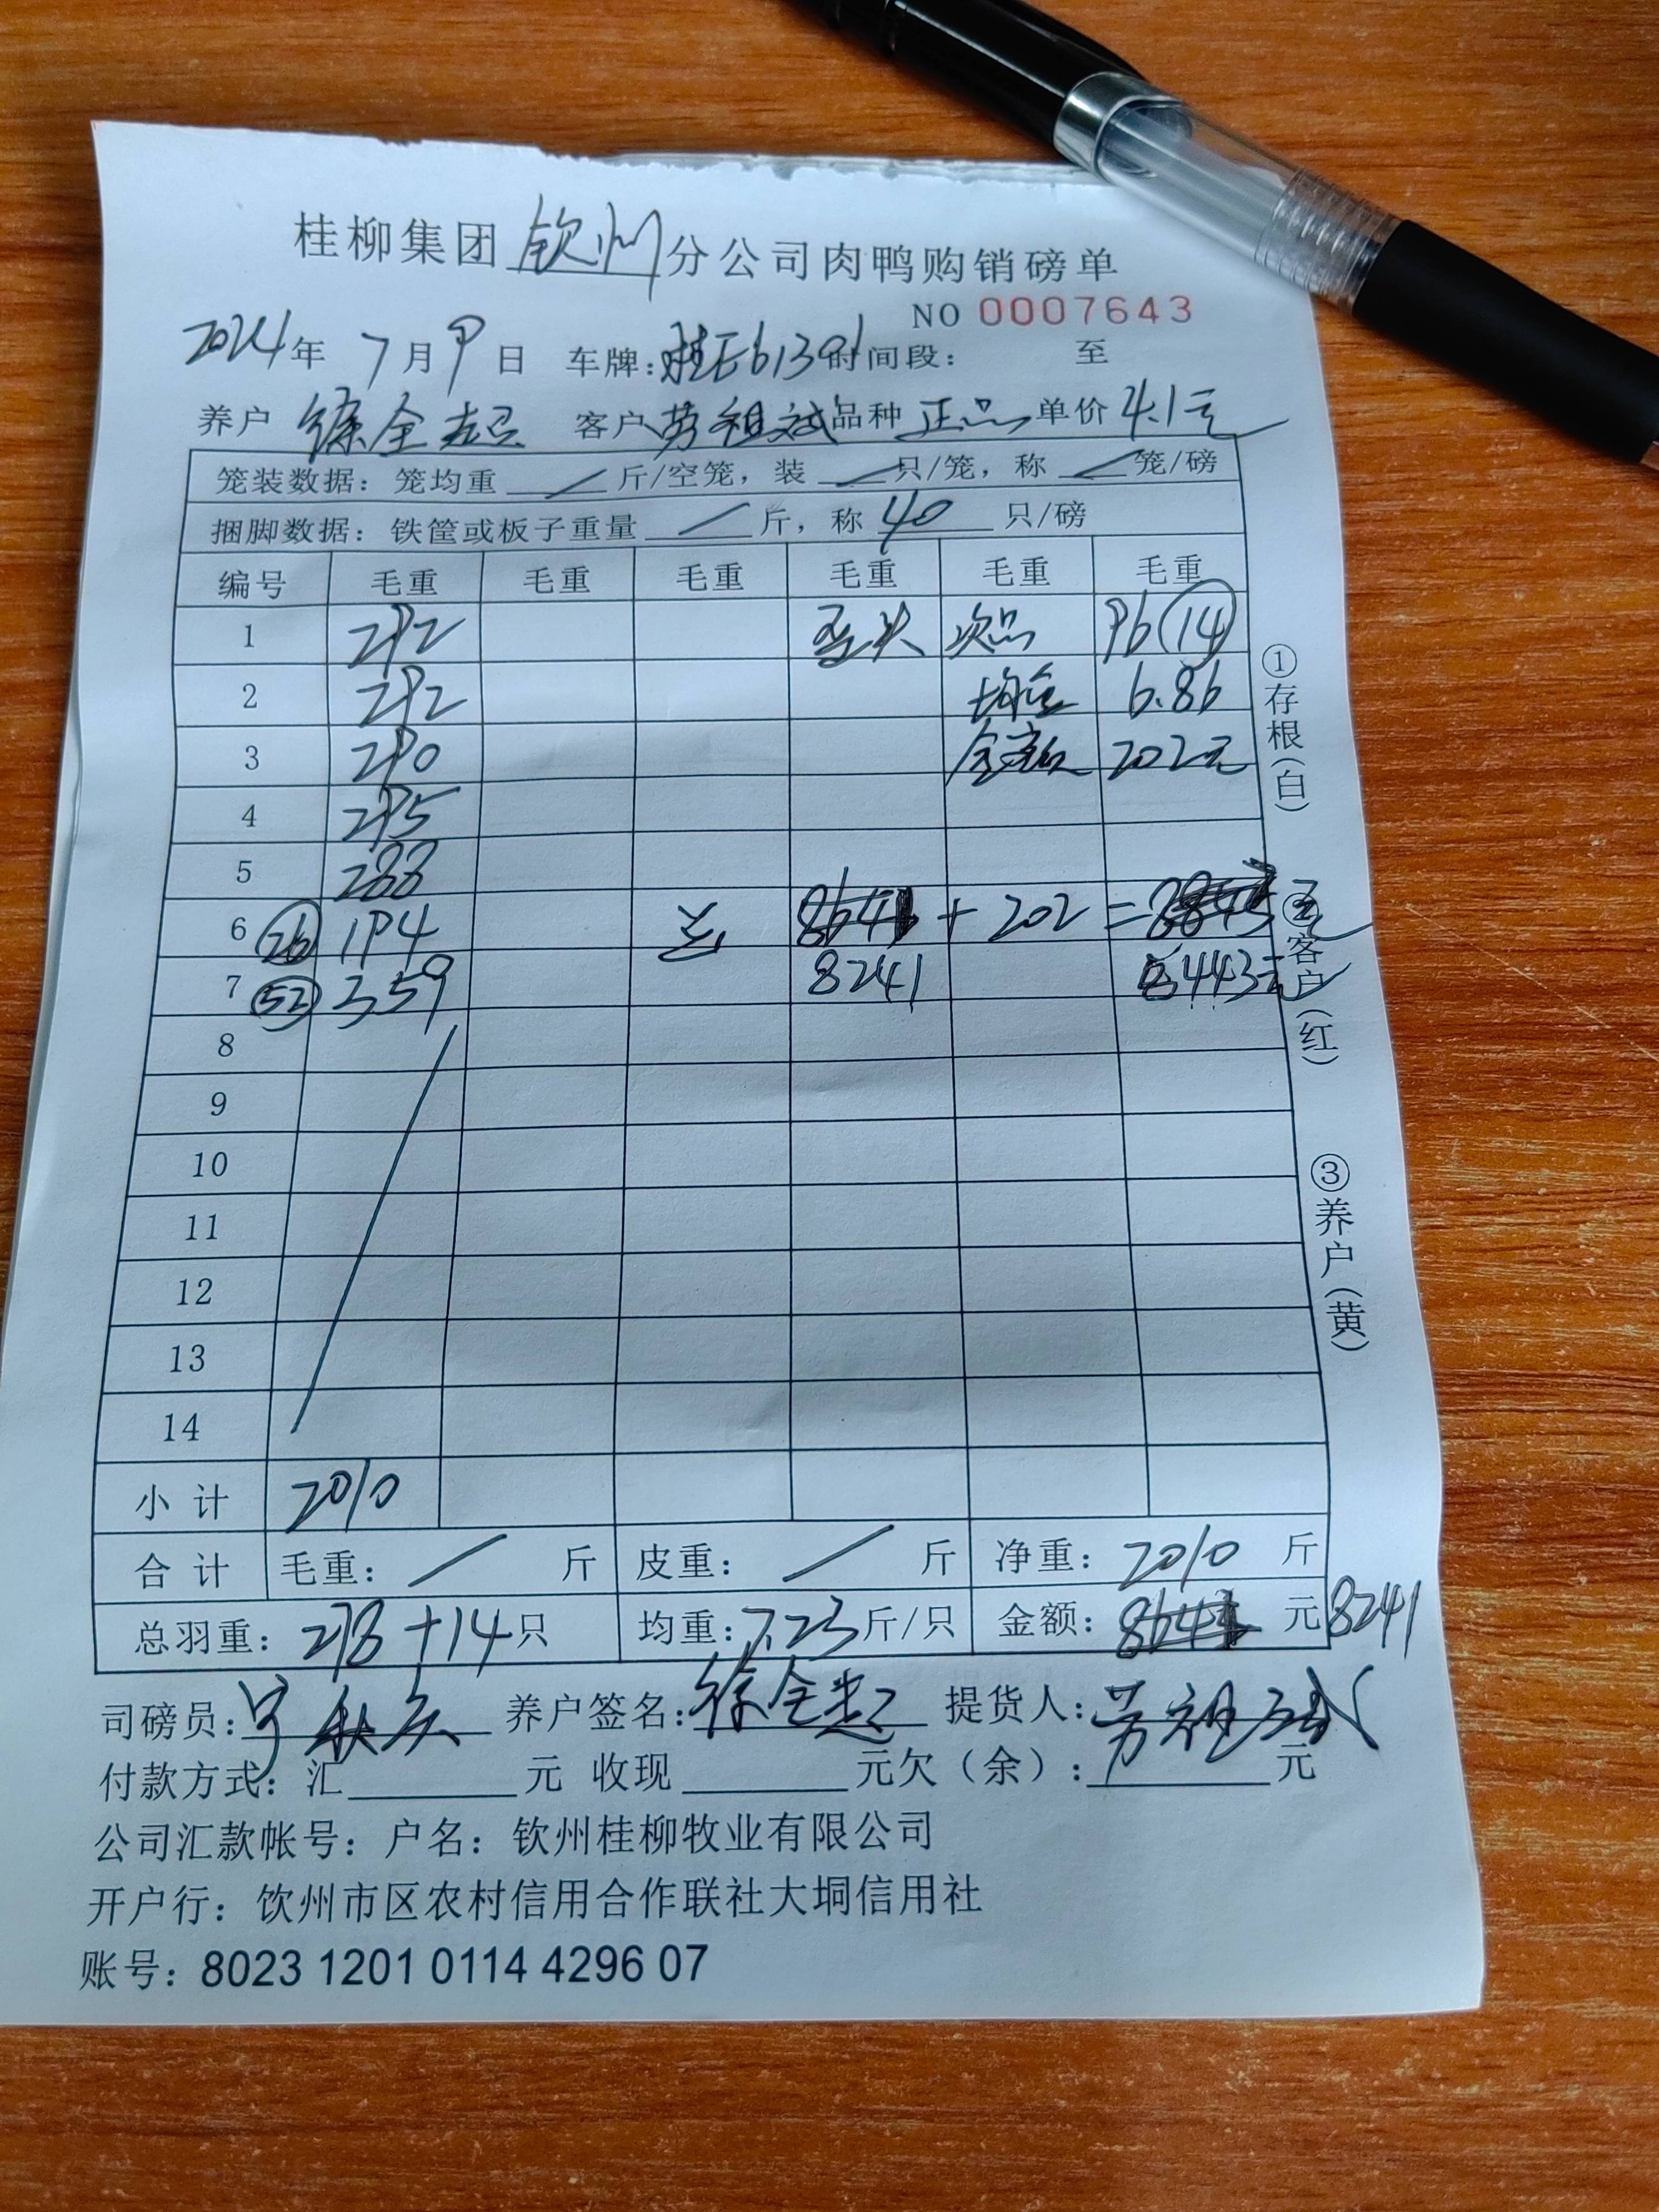 桂柳集团 钦州 分公司肉鸭购销磅单
NO 0007643
2024年 7月9日 车牌:桂E61391 时间段: 至
养户 徐全超 客户 劳祖斌 品种 正品 单价 4.1元
笼装数据：笼均重 / 斤/空笼，装 / 只/笼，称 / 笼/磅
捆脚数据：铁筐或板子重量 / 斤，称 40 只/磅
编号 毛重 毛重 毛重 毛重 毛重 毛重
1 292 次品 96 (14)
2 292 均重 6.86
3 290 金额 202元
4 295
5 288
6 (26) 194 + 202 =
7 (52) 359 8241 8443元
8
9
10
11
12
13
14
小计 2010
合计 毛重： / 斤 皮重： / 斤 净重：2010 斤
总羽重：278+14只 均重：7.23斤/只 金额： 元 8241
司磅员: 养户签名:徐全超 提货人:劳祖斌
付款方式：汇 元 收现 元欠（余）: 元
公司汇款帐号：户名：钦州桂柳牧业有限公司
开户行：饮州市区农村信用合作联社大垌信用社
账号：8023 1201 0114 4296 07
①存根（白）
②客户（红）
③养户（黄）